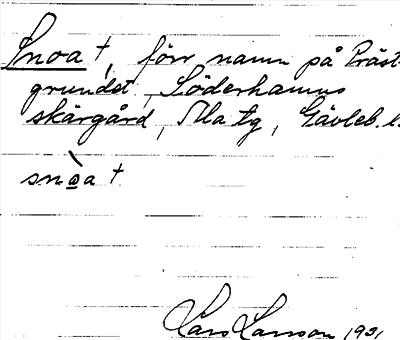 Snoa †, förr namn på Präst-
grundet, Söderhamns
skärgård, Ala tg, Gävleb. l.
snòa †
Lars Larsson 1921